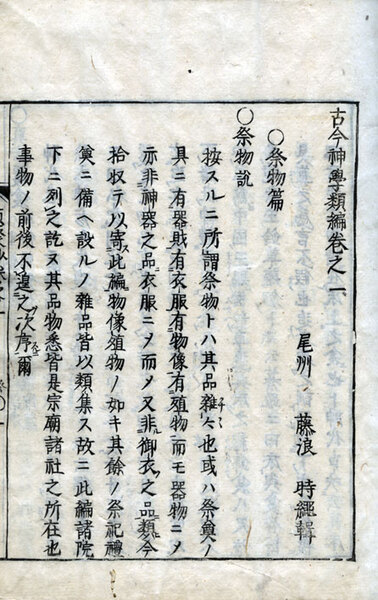 古今神學類編卷之一
尾州 藤浪 時繩輯
○祭物篇
○祭物說
按スルニ所謂祭物トハ其品雜々也或ハ祭奠ノ
具ニ有器財有衣服有物像有殖物而モ器物ニメ
亦非神器之品衣服ニメ而メ又非御衣之品類今
拾収テ以寄此編物像殖物ノ如キ其餘ノ祭祀禮
奠ニ備ヘ設ルノ雜品皆以類集ス故ニ此編諸院
下ニ列之訖ヌ其品物悉皆是宗廟諸社之所在也
事物ノ前後不遑之次序爾